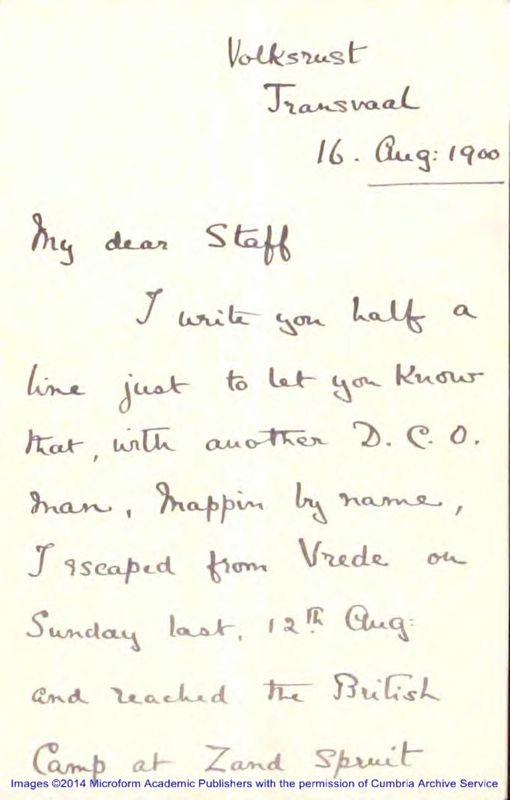 Volksrust
Transvaal
16. Aug: 1900
My dear Staff
I write you half a
line just to let you know
that, with another D. C. O.
man, Mappin by name,
I escaped from Vrede on
Sunday last, 12th Aug:
and reached the British
Camp at Zand Spruit
Images ©2014 Microform Academic Publishers with the permission of Cumbria Archive Service